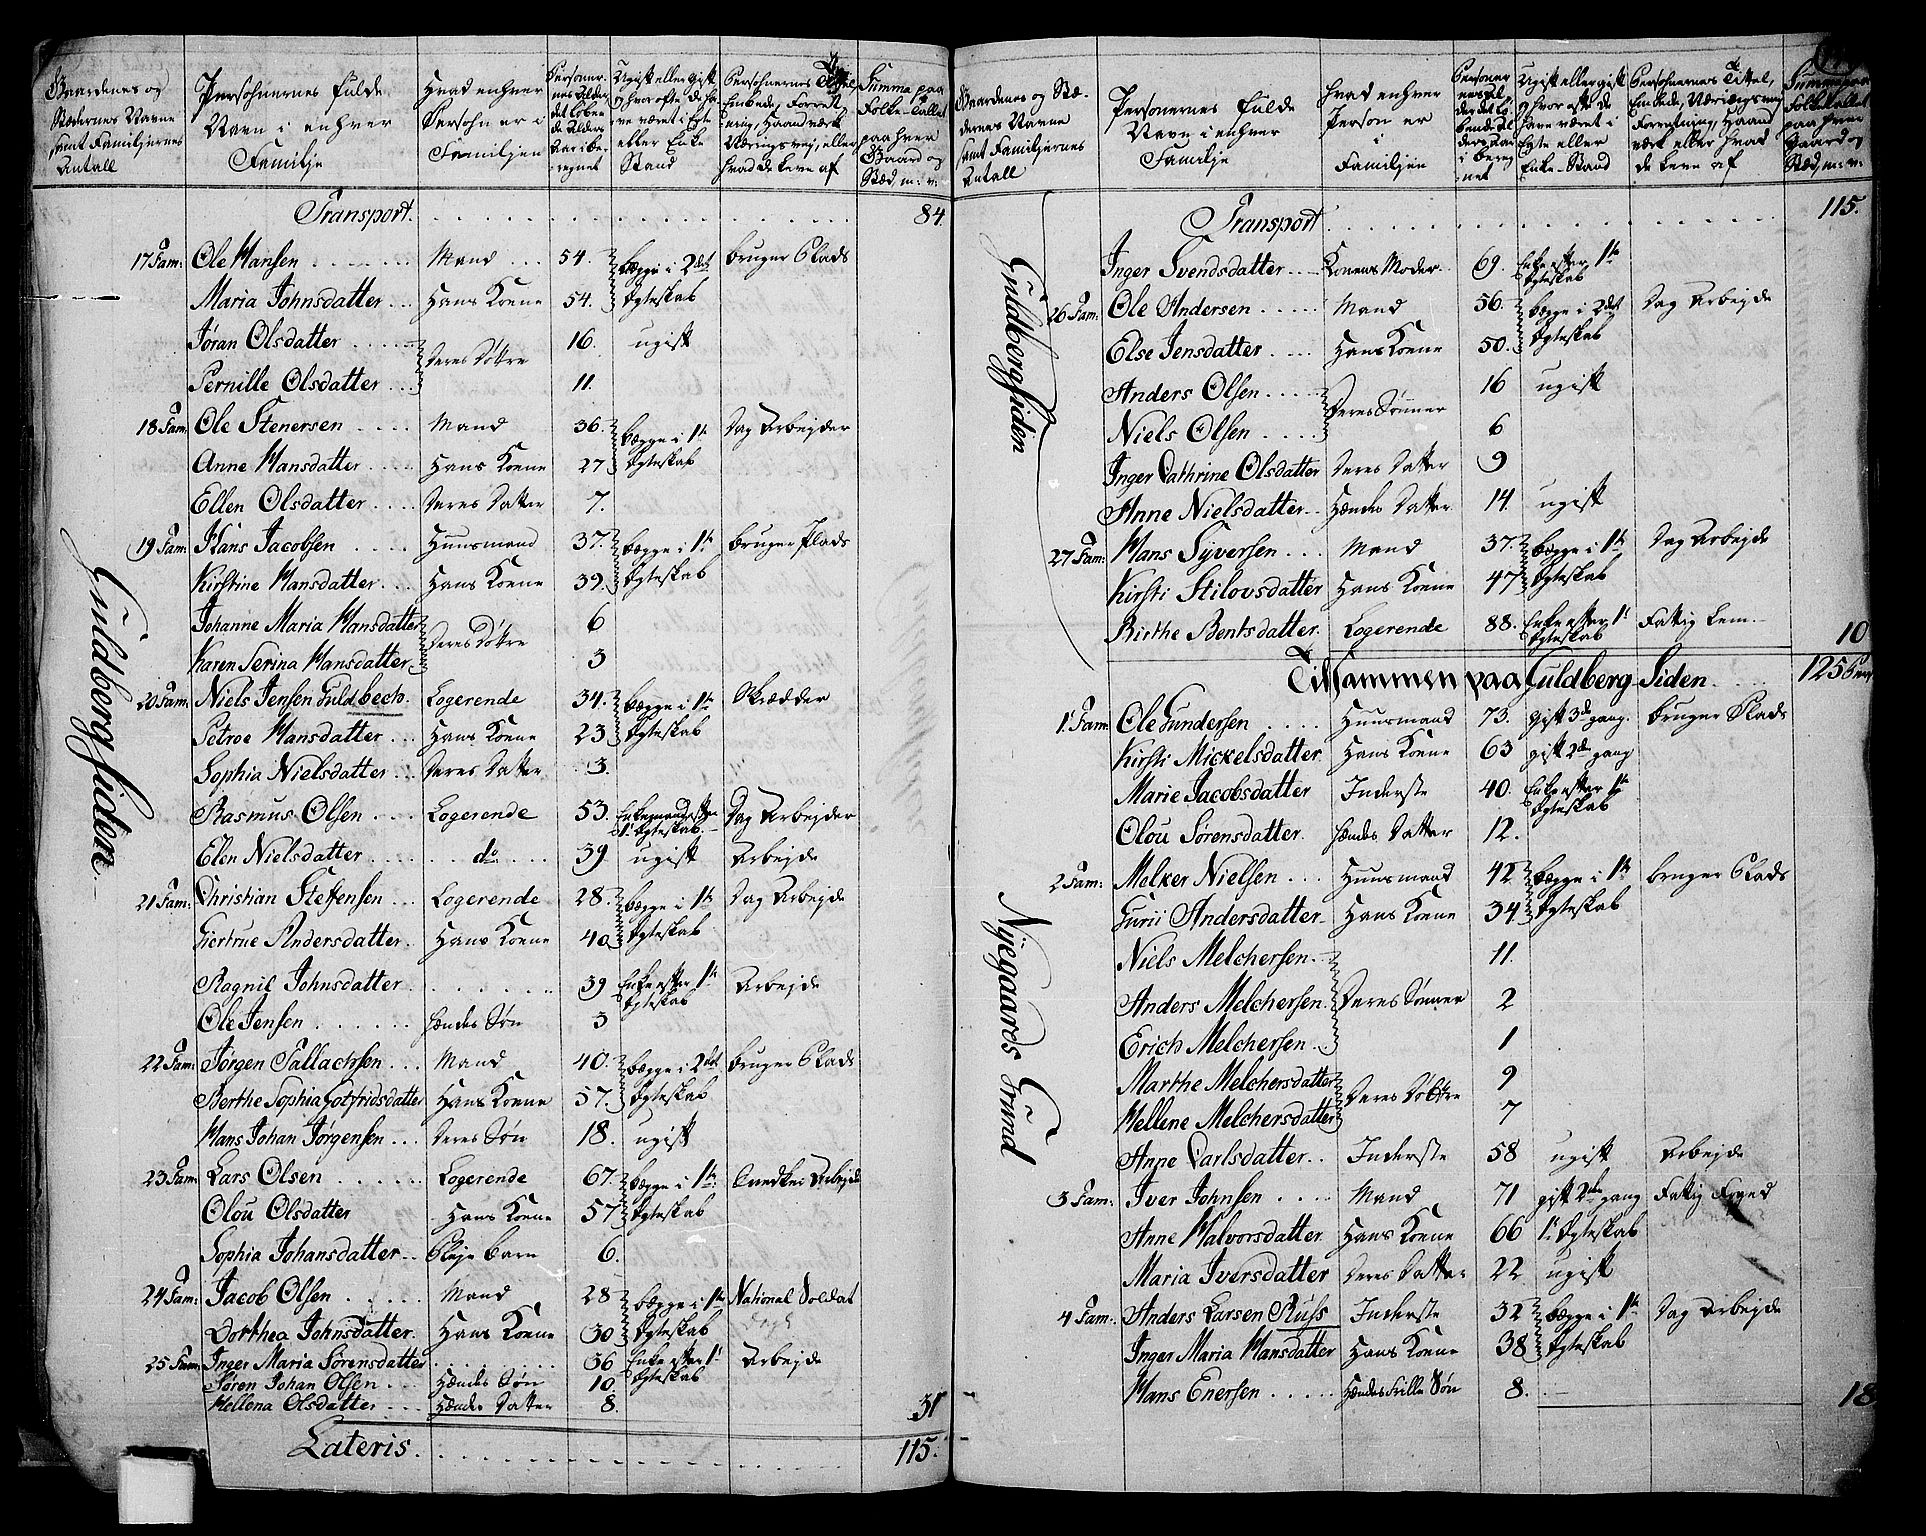 Gaardenes og
Stædernes Navne
samt Familjernes
Antall
Persohnernes fulde
Navn i enhver
Familje
Hvad enhver
Persohn er i
Familjen
Personer-
nes Alder
det løben-
de Alders
Aar ibe-
regnet
Ugift eller gift
og hvor ofte, de ha-
ve været i Egte
eller Enke
Stand
Persohnernes Titel,
Embede, Forret-
ning, Haandværk
Næringsvej, eller
hvad de leve af
Summa paa
Folke-Tallet
paa hver
Gaard og
Stæd m: v:
Guldbergsiden
Transport. 84
17 Fam: Ole Hansen Mand 54. begge i 2det Ægteskab bruger Plads
Maria Johnsdatter Hans Kone 54.
Jøran Olsdatter Deres Døttre 16. ugift
Pernille Olsdatter 11.
18 Fam: Ole Stenersen Mand 36. begge i 1te Ægteskab Dag Arbejder
Anne Hansdatter Hans Kone 27
Ellen Olsdatter Deres Datter 7.
19 Fam: Hans Jacobsen Huusmand 37. begge i 1te Ægteskab bruger Plads
Kirstine Hansdatter Hans Kone 39.
Johanne Maria Hansdatter Deres Døttre 6
Karen Serina Hansdatter 3
20 Fam: Niels Jensen Guldbech. Logerende 34. begge i 1te Ægteskab Skrædder
Petroe Hansdatter Hans Kone 23
Sophia Nielsdatter Deres Datter 3.
Rasmus Olsen Logerende 53. Enkemand efter 1t Ægteskab Dag Arbejder
Elen Nielsdatter do 39 ugift Arbejde
21 Fam: Christian Steffensen Logerende 28. begge i 1te Ægteskab Dag Arbejde
Giertrue Andersdatter Hans Kone 40
Ragnil Johnsdatter 39 Enke efter 1te Ægteskab Arbejde
Ole Jensen Hendes Søn 3
22 Fam: Jørgen Tallachsen Mand 40. begge i 2det Ægteskab bruger Plads
Berthe Sophia Gotfridsdatter Hans Kone 57.
Hans Johan Jørgensen Deres Søn 18. ugift
23 Fam: Lars Olsen Logerende 67. begge i 1te Ægteskab Arbejde
Olou Olsdatter Hans Kone 57
Sophia Johansdatter Pleje barn 6.
24 Fam: Jacob Olsen Mand 28 begge i 1te Ægteskab National Soldat
Dorthea Johnsdatter Hans Kone 30
25 Fam: Inger Maria Sørensdatter 36 Enke efter 1t Ægteskab Arbejde
Søren Johan Olsen Hendes Søn 10.
Hellena Olsdatter Hendes Datter 8. 31
Lateris. 115.
Gaardenes og Stæ-
dernes Navne
samt Familjernes
Antall
Personernes fulde
Navn i enhver
Familje
Hvad enhver
Person er
i
Familjen
Personer
nes Al-
der det lø-
bende Al-
ders Aar
i bereg
net
Ugift eller gift
og hvor ofte de
have været i
Egte eller
Enke-Stand
Persohnernes Tittel,
Embede, Næringsvej
Forretning, Haand
værk eller hvad
de leve af
Summa paa
Folketallet
paa hver
Gaard og
Stæd, m: v:
Guldbergsiden
Transport 115.
Inger Svendsdatter Konens Moder 69. Enke efter 1te Ægteskab
26 Fam: Ole Andersen Mand 56. begge i 2det Ægteskab Dag Arbejde
Else Jensdatter Hans Kone 50.
Anders Olsen Deres Sønner 16 ugift
Niels Olsen 6
Inger Cathrine Olsdatter Deres Datter 9
Anne Nielsdatter Hendes Datter 14. ugift
27 Fam: Hans Syversen Mand 37. begge i 1te Ægteskab Dag Arbejde
Kirsti Stilovsdatter Hans Kone 47
Birthe Bentsdatter. Logerende 88. Enke efter 1t Ægteskab Fattig Lem 10
Tilsammen paa Guldberg-Siden 125
Nyegaards Grund
1 Fam: Ole Gundersen Huusmand 73. gift 3de gang. bruger Plads
Kirsti Mickelsdatter Hans Kone 63 gift 2den gang
Marie Jacobsdatter Inderste 40. Enke efter 1te Ægteskab
Olou Sørensdatter. Hendes Datter 12.
2 Fam: Melker Nielsen Huusmand 42 begge i 1te Ægteskab bruger Plads
Gurii Andersdatter Hans Kone 34
Niels Melchersen. 11.
Anders Melchersen. Deres Sønner 2
Erich Melchersen 1
Marthe Melchersdatter Deres Døttre 9
Hellene Melchersdatter 7
Anne Carlsdatter Inderste 58 ugift Arbejde
3 Fam: Iver Johnsen Mand 71 gift 2den gang Fattig
Anne Halvorsdatter Hans Kone 66 1t Ægteskab
Maria Iversdatter Deres Datter 22 ugift
4 Fam: Anders Larsen Russ Inderste 32 begge i 1te Ægteskab Dag Arbejde
Inger Maria Hansdatter Hans Kone 38
Hans Enersen Hendes Frille Søn 8. 18